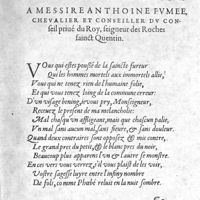 A MESSIRE ANTHOINE FVMEE,
CHEVALIER ET CONSEILLER DV CON-
seil priué du Roy, seigneur des Roches
sainct Quentin.
VOus qui estes poussé de la saincte fureur
Qui les hommes mortels aux immortels allie,
Et qui ne tenez rien de l'humaine folie,
Et qui vous tenez loing de la commune erreur:
D'un visage bening, vous pry, Monseigneur,
Receuez le present de ma melancholie:
Mal chasqu'un affligeant, mais que chascun pallie,
Vn mal sans aucun mal, sans fieure, & sans douleur.
Quand deux contraires sont opposez & mis contre,
Le grand pres du petit, & le blanc pres du noir,
Beaucoup plus apparens l'vn & l'autre se monstre.
En ces vers vous verrez, s'il vous plaist de les voir,
Vostre sagesse luyre entre l'infiny nombre
De fols, comme Phœbé reluit en la nuit sombre.